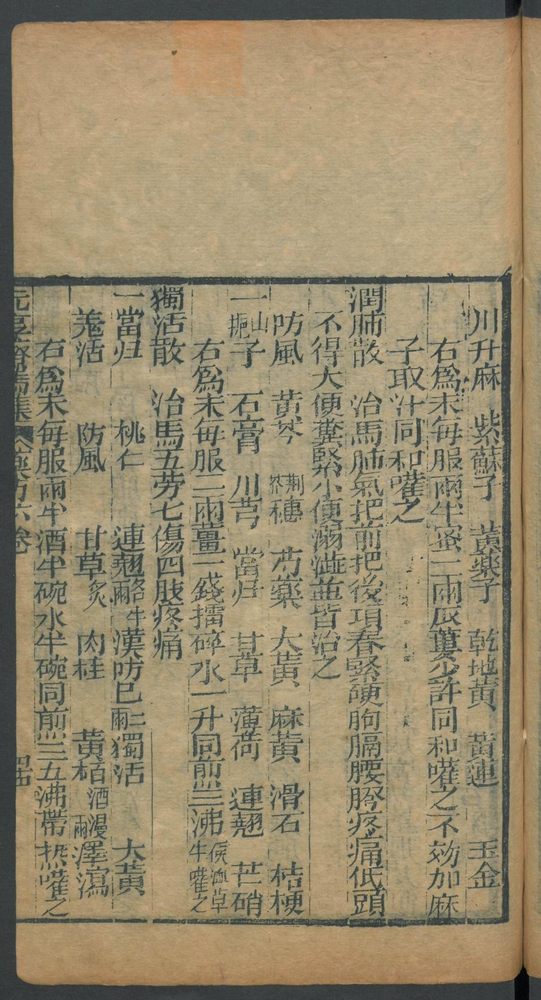 川升麻 紫蘇子 黃藥子 乾地黃 黃連 玉金
右爲末每服兩半蜜二兩灰藋少許同和嚾之不効加麻
子取汁同和嚾之
潤肺散 治馬肺氣把前把後項脊緊硬胸膈腰胯疼痛低頭
不得大便糞緊小便溺澁並皆治之
防風 黃芩 荆芥穗 芍藥 大黃 麻黃 滑石 桔梗
一山梔子 石膏 川芎 當归 甘草 薄荷 連翹 芒硝
右爲末每服二兩薑一錢擂碎水一升同煎三沸候溫草半嚾之
獨活散 治馬五劳七傷四肢疼痛
一當归 桃仁 連翹各半兩 漢防已二兩 獨活 大黃
羗活 防風 甘草炙 肉桂 黃栢酒浸兩 澤瀉
右爲末每服兩半酒半碗水半碗同煎三五沸帶热嚾之
元亨療馬集 藥方六卷